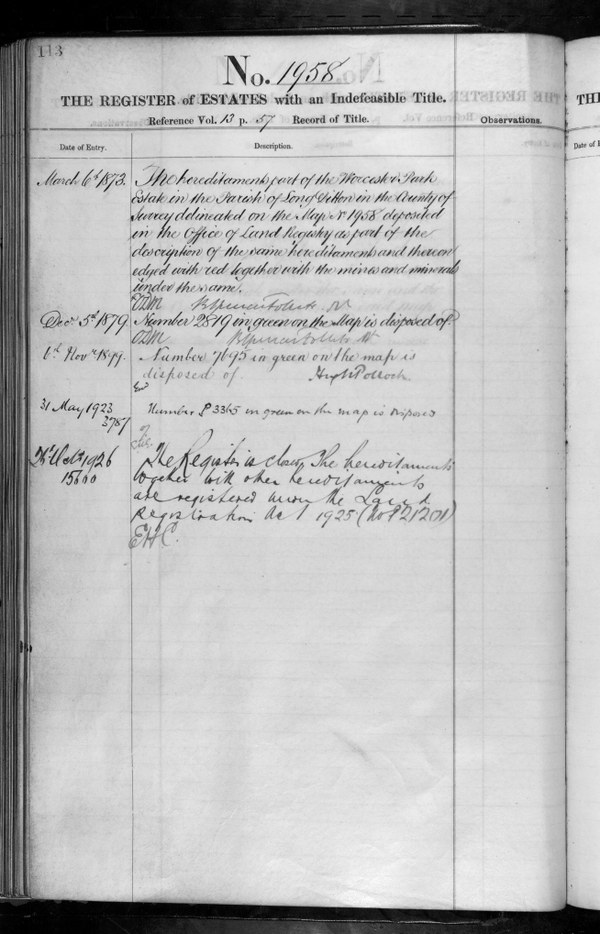 113
No. 1958
THE REGISTER of ESTATES with an Indefeasible Title.
Reference Vol. 13 p. 57 Record of Title.
Observations.
Date of Entry.
Description.
March 6th 1873.
The hereditaments part of the Worcester Park
Estate in the Parish of Long Ditton in the County of
Surrey delineated on the Map No 1958 deposited
in the Office of Land Registry as part of the
description of the same hereditaments and thereon
edged with red together with the mines and minerals
under the same.
Decr 5th 1879.
Number 2819 in green on the Map is disposed of.
1st Novr 1899.
Number 7695 in green on the map is
disposed of. Hugh Pollock
31 May 1923
3787
Number P 3365 in green on the map is disposed
of
26th Octr 1926
15600
The Register is closed, The hereditaments
together with other hereditaments
are registered under the Land
Registration Act 1925 (No P21201)
EHC.
THE
Date of E